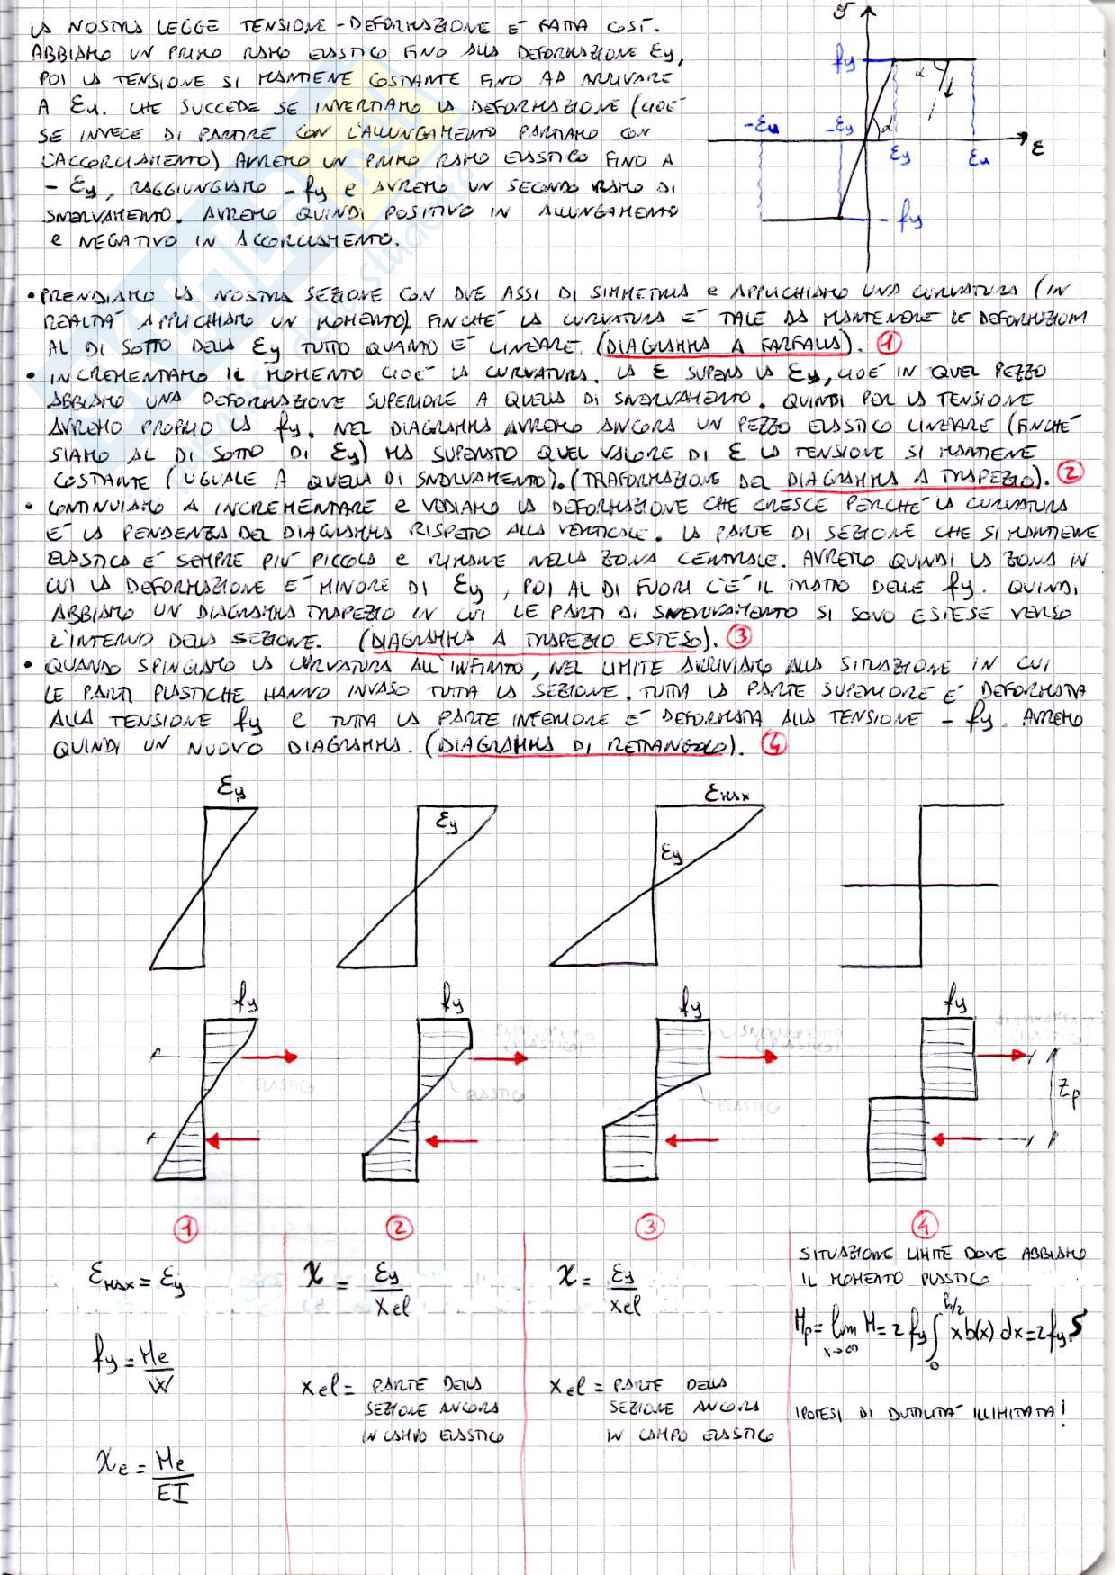 LA NOSTRA LEGGE TENSIONE-DEFORMAZIONE E' FATTA COSÌ.
ABBIAMO UN PRIMO RAMO ELASTICO FINO ALLA DEFORMAZIONE Ɛy,
POI LA TENSIONE SI MANTIENE COSTANTE FINO AD ARRIVARE
A Ɛu. CHE SUCCEDE SE INVERTIAMO LA DEFORMAZIONE (CIOE'
SE INVECE DI PARTIRE CON L'ALLUNGAMENTO PARTIAMO CON
L'ACCORCIAMENTO) AVREMO UN PRIMO RAMO ELASTICO FINO A
- Ɛy, RAGGIUNGIAMO - fy e AVREMO UN SECONDO RAMO DI
SNERVAMENTO. AVREMO QUINDI POSITIVO IN ALLUNGAMENTO
e NEGATIVO IN ACCORCIAMENTO.
σ
fy
α
-Ɛu
-Ɛy
α
Ɛy
Ɛu
Ɛ
- fy
• PRENDIAMO LA NOSTRA SEZIONE CON DUE ASSI DI SIMMETRIA e APPLICHIAMO UNA CURVATURA (IN
REALTA' APPLICHIAMO UN MOMENTO). FINCHE' LA CURVATURA E' TALE DA MANTENERE LE DEFORMAZIONI
AL DI SOTTO DELLA Ɛy TUTTO QUANTO E' LINEARE. (DIAGRAMMA A FARFALLA). 1
• INCREMENTIAMO IL MOMENTO CIOE' LA CURVATURA. LA Ɛ SUPERA LA Ɛy, CIOE' IN QUEL PEZZO
ABBIAMO UNA DEFORMAZIONE SUPERIORE A QUELLA DI SNERVAMENTO. QUINDI PER LA TENSIONE
AVREMO PROPRIO LA fy. NEL DIAGRAMMA AVREMO ANCORA UN PEZZO ELASTICO LINEARE (FINCHE'
SIAMO AL DI SOTTO DI Ɛy) MA SUPERATO QUEL VALORE DI Ɛ LA TENSIONE SI MANTIENE
COSTANTE (UGUALE A QUELLA DI SNERVAMENTO). (TRAFORMAZIONE DEL DIAGRAMMA A TRAPEZIO). 2
• CONTINUIAMO A INCREMENTARE e VEDIAMO LA DEFORMAZIONE CHE CRESCE PERCHE' LA CURVATURA
E' LA PENDENZA DEL DIAGRAMMA RISPETTO ALLA VERTICALE. LA PARTE DI SEZIONE CHE SI MANTIENE
ELASTICA E' SEMPRE PIU' PICCOLA e RIMANE NELLA ZONA CENTRALE. AVREMO QUINDI LA ZONA IN
CUI LA DEFORMAZIONE E' MINORE DI Ɛy, POI AL DI FUORI C'E' IL TRATTO DELLE fy. QUINDI
ABBIAMO UN DIAGRAMMA TRAPEZIO IN CUI LE PARTI DI SNERVAMENTO SI SONO ESTESE VERSO
L'INTERNO DELLA SEZIONE. (DIAGRAMMA A TRAPEZIO ESTESO). 3
• QUANDO SPINGIAMO LA CURVATURA ALL'INFINITO, NEL LIMITE ARRIVIAMO ALLA SITUAZIONE IN CUI
LE PARTI PLASTICHE HANNO INVASO TUTTA LA SEZIONE. TUTTA LA PARTE SUPERIORE E' DEFORMATA
ALLA TENSIONE fy e TUTTA LA PARTE INFERIORE E' DEFORMATA ALLA TENSIONE - fy. AVREMO
QUINDI UN NUOVO DIAGRAMMA. (DIAGRAMMA DI RETTANGOLO). 4
Ɛy
Ɛy
Ɛmax
Ɛy
fy
fy
fy
fy
Zp
1
2
3
4
ƐMAX = Ɛy
fy = Me/W
χe = Me/EI
χ = Ɛy/xel
xel = PARTE DELLA
SEZIONE ANCORA
IN CAMPO ELASTICO
χ = Ɛy/xel
xel = PARTE DELLA
SEZIONE ANCORA
IN CAMPO ELASTICO
SITUAZIONE LIMITE DOVE ABBIAMO
IL MOMENTO PLASTICO
Mp = lim χ→∞ M = 2 fy ∫0 h/2 x b(x) dx = 2 fy S
IPOTESI DI DUTTILITA' ILLIMITATA!